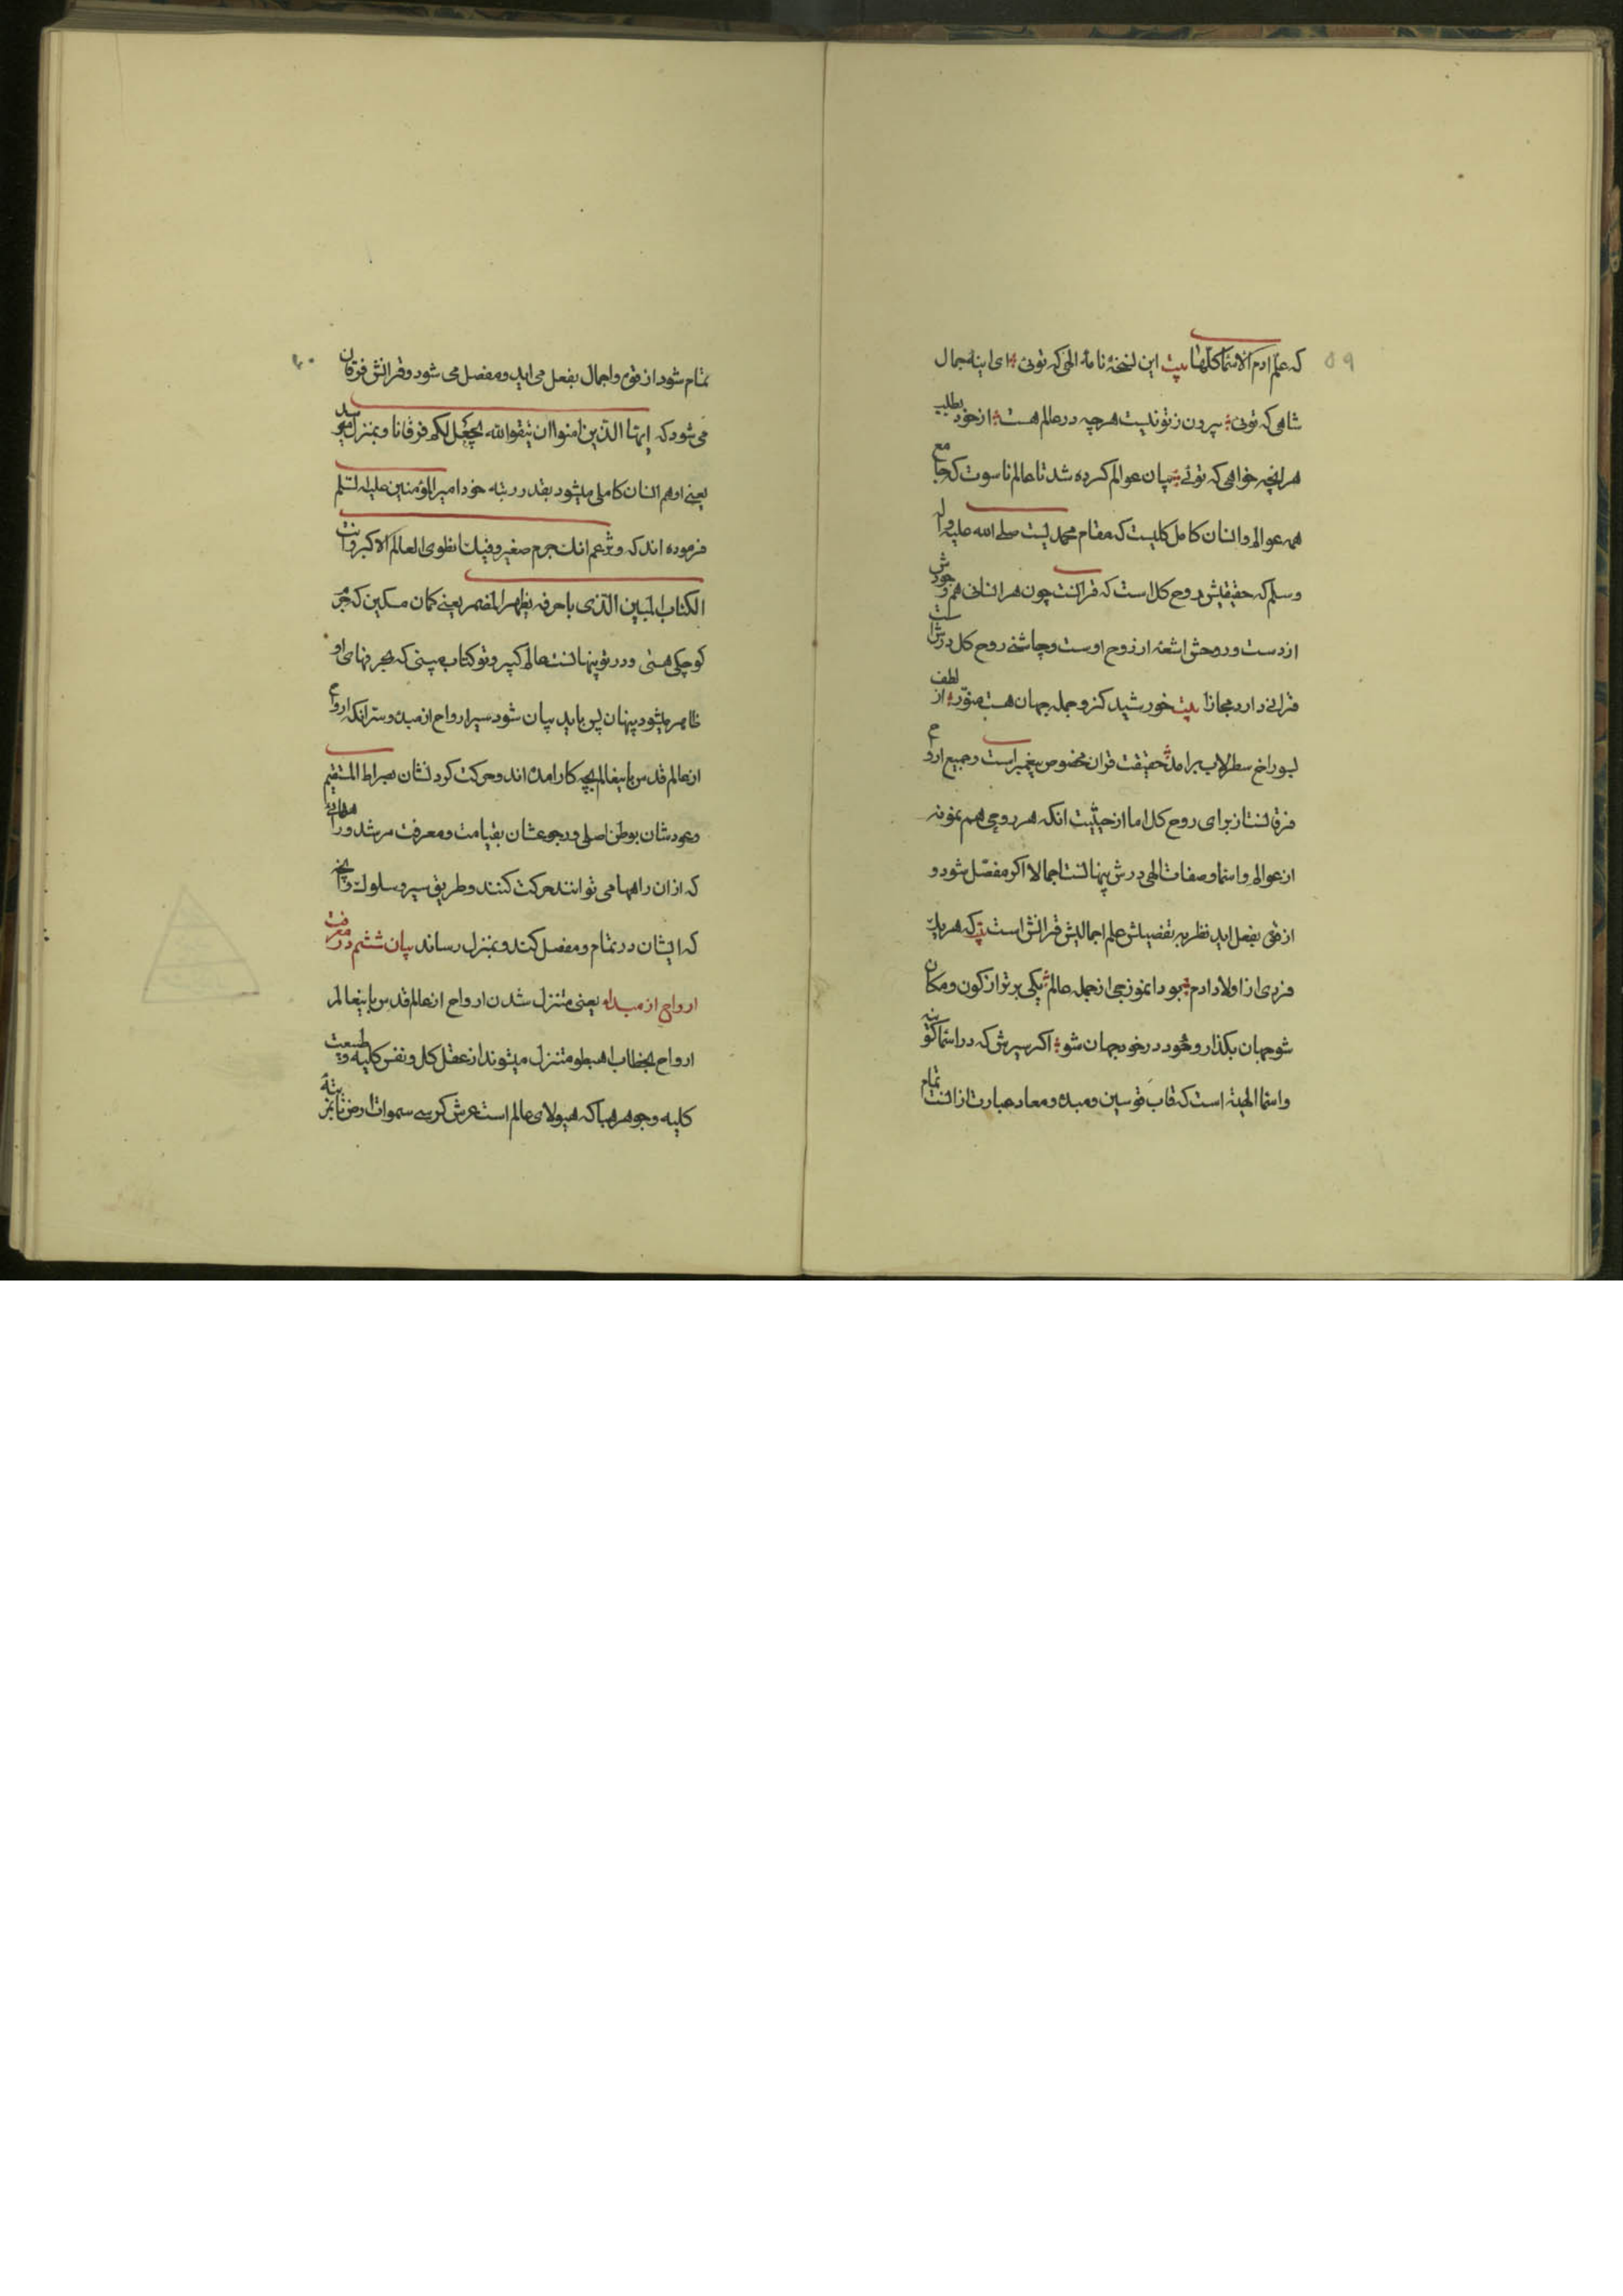 ۵۹
که علم ادم الاسمآ کلها بیت این نسخهٔ نامهٔ الهی که توئی ای اینهٔ جمال
شاهی که توئی بیرون ز تو نیست هرچه در عالم هست از خود بطلب
هر انچه خواهی که توئی بیان عوالم کرده شد تا عالم ناسوت که جامع
همه عوالم و انسان کامل کلیست که مقام محمدیست صلی الله علیه و اله
و سلم که حقیقتش روح کل است که قرانست چون هر انسانی هم وجودش
ازدست و روحش اشعهٔ از روح اوست و چاشنی روح کل درش است
قرانی دارد مجازا بیت خورشید کز و جمله جهان هست منور از لطف
بسوراخ سطرلاب برامد حقیقت قران مخصوص پیغمبر است و جمیع ارواح
فرقانست از برای روح کل اما از حیثیت انکه هر روحی هم نمونه
از عوالم و اسما و صفات الهی درش پنهانست اجمالا اکر مفصل شود و
از قوی بفعل اید نظر به تفصیلش علم اجمالیش قرانش است که هر یک
فردی از اولاد ادم بود انموزجی از جمله عالم یکی برتر از کون و مکان
شو جهان بکذار و خود در خود جهان شو اکر سیرش که در اسما کونیه
و اسما الهیه است که قاب قوسین و مبدء و معاد عبارت از انست تمام
۶۰
تمام شود از قوی و اجمال بفعل می اید و مفصل می شود و قرانش فرقان
می شود که ایها الذین امنوا ان تتقوا الله یجعل لکم فرقانا و بمنزل میرسد
یعنی او هم انسان کامل میشود بقدر رتبه خود امیر المؤمنین علیه السلم
فرموده اند که و تزعم انک جرم صغیر و فیک انطوی العالم الاکبر و انت
الکتاب المبین الذی باحرفه یظهر المضمر یعنی کمان مسکین که جرم
کوچکی هستی و در تو پنهانست عالم کبیر و تو کتاب مبینی که بحرفهای او
ظاهر میشود پنهان پس باید بیان شود سیر ارواح از مبدء و سر انکه ارواح
از عالم قدس باینعالم بچه کار امده اند و حرکت کردنشان بصراط المستقیم
و عودشان بوطن اصلی و رجوعشان بقیامت و معرفت مرشد و راههائی
که از ان راهها می توانند حرکت کنند و طریق سیر و سلوک و انچه
که ایشان در تمام و مفصل کند و بمنزل رساند بیان ششم در معرفت
ارواح از مبداء یعنی متنزل شدن ارواح از عالم قدس باینعالم
ارواح بخطاب اهبطو متنزل میشوند از عقل کل و نفس کلیه و طبیعت
کلیه و جوهر هبا که هیولای عالم است عرش کرسی سموات ارض